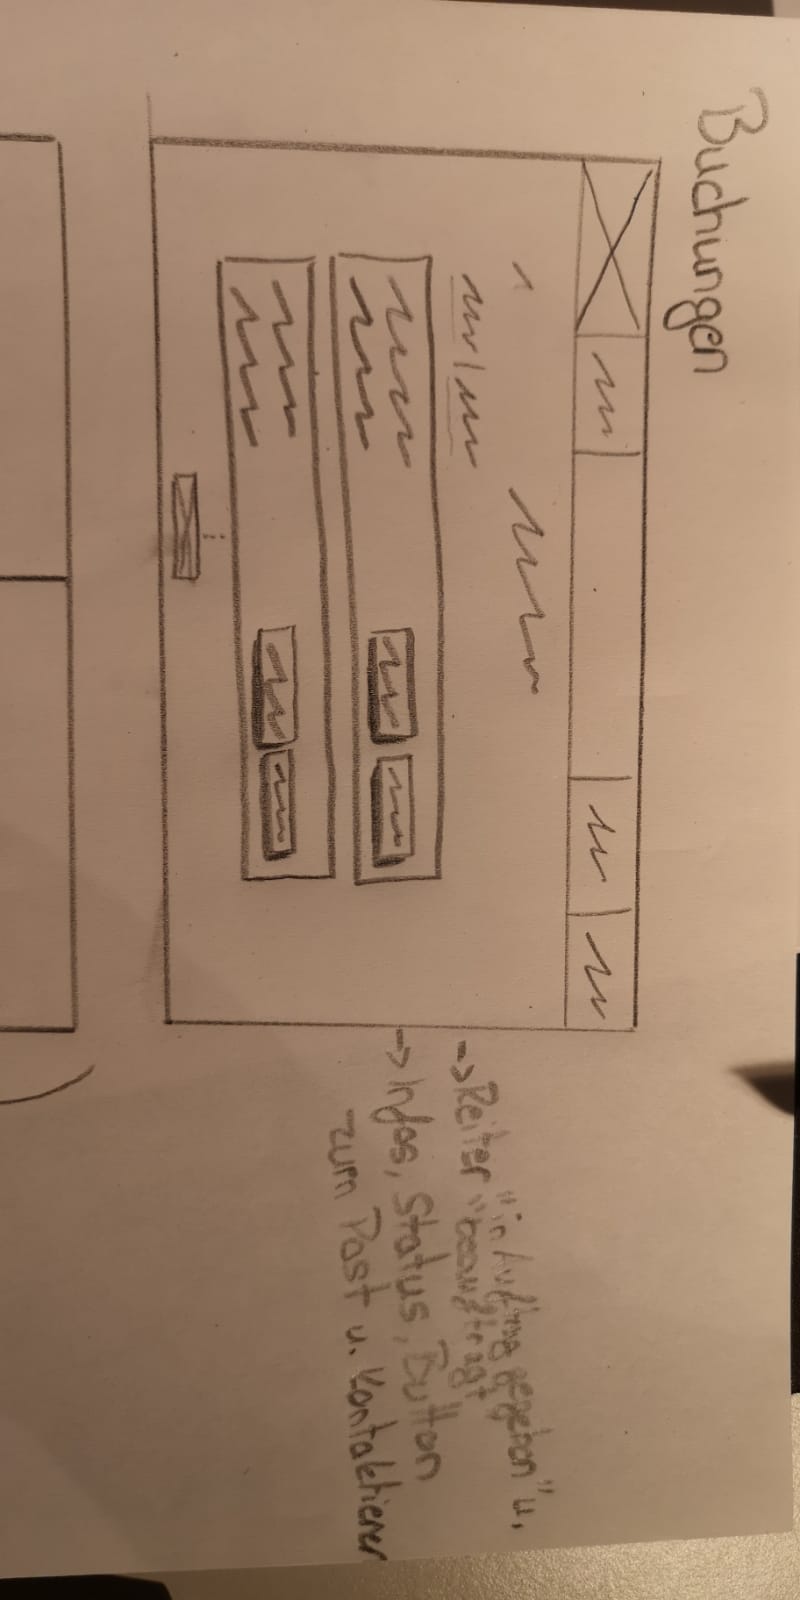 Buchungen
-> Reiter "in Auftrag gegeben" u.
"beauftragt"
-> Infos, Status, Button
zum Post u. Kontaktieren